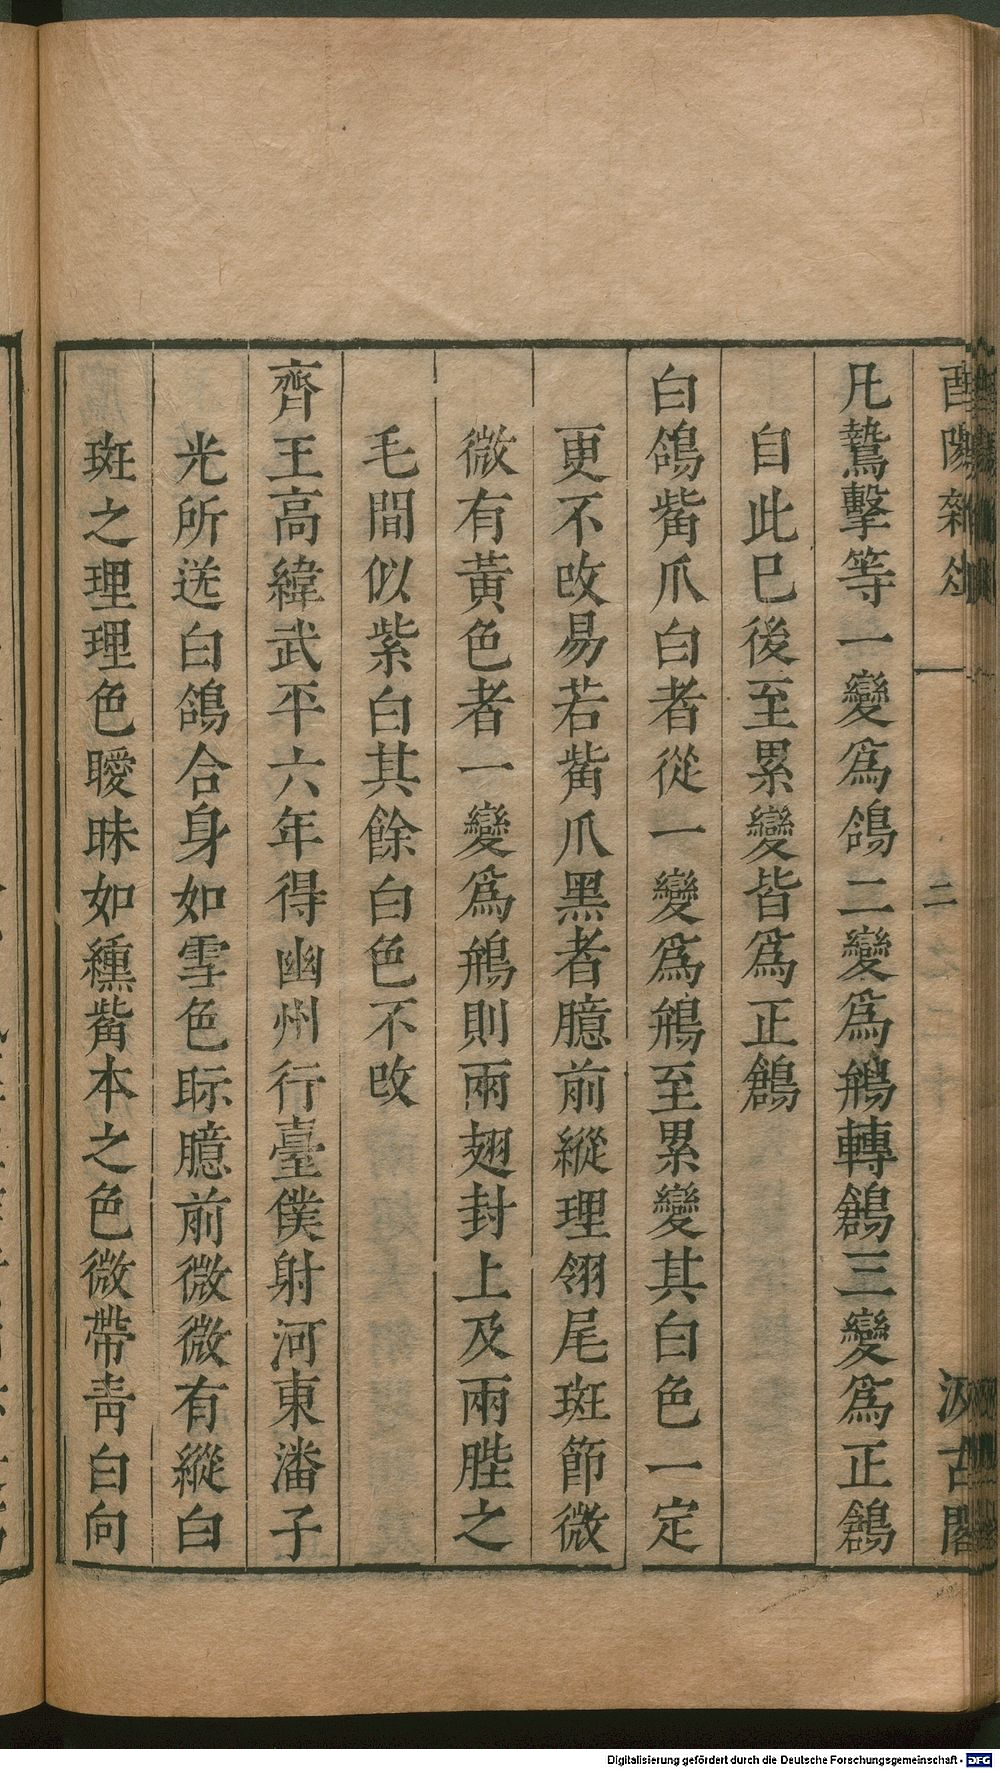 酉陽雜俎
二
汲古閣
凡鷙擊等一變爲鴿二變爲鶬轉鶬三變爲正鶬
自此已後至累變皆爲正鶬
白鴿觜爪白者從一變爲鶬至累變其白色一定
更不改易若觜爪黑者臆前縱理翎尾斑節微
微有黃色者一變爲鶬則兩翅封上及兩䏶之
毛間似紫白其餘白色不改
齊王高緯武平六年得幽州行臺僕射河東潘子
光所送白鴿合身如雪色眎臆前微微有縱白
斑之理理色曖昧如纁觜本之色微帶靑白向
Digitalisierung gefördert durch die Deutsche Forschungsgemeinschaft - DFG